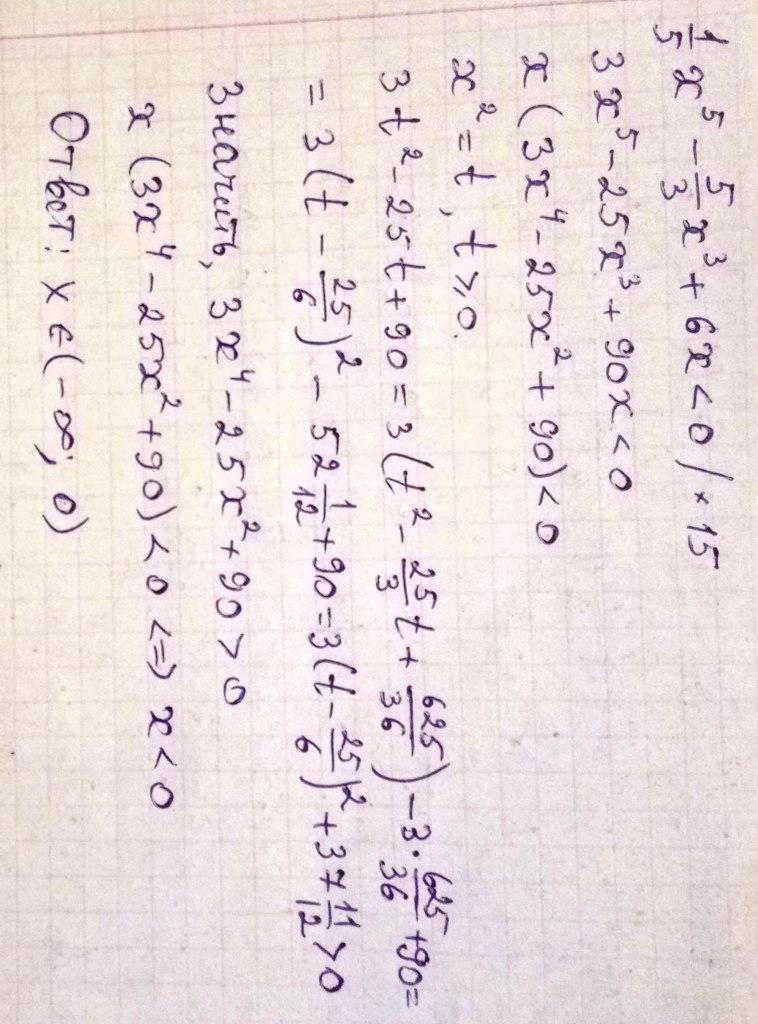 1/5 x⁵ - 5/3 x³ + 6x < 0 / × 15
3x⁵ - 25x³ + 90x < 0
x (3x⁴ - 25x² + 90) < 0
x² = t, t ⩾ 0.
3t² - 25t + 90 = 3 (t² - 25/3 t + 625/36) - 3 · 625/36 + 90 =
= 3 (t - 25/6)² - 52 1/12 + 90 = 3 (t - 25/6)² + 37 11/12 > 0
Значить, 3x⁴ - 25x² + 90 > 0
x (3x⁴ - 25x² + 90) < 0 <=> x < 0
Ответ: x ∈ (-∞; 0)